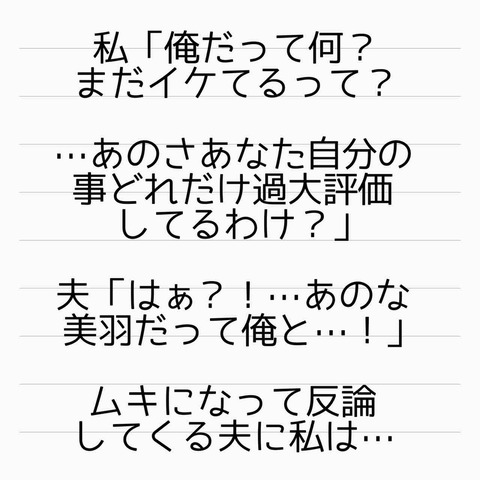 私「俺だって何？
まだイケてるって？
…あのさあなた自分の
事どれだけ過大評価
してるわけ？」
夫「はぁ？！…あのな
美羽だって俺と…！」
ムキになって反論
してくる夫に私は…